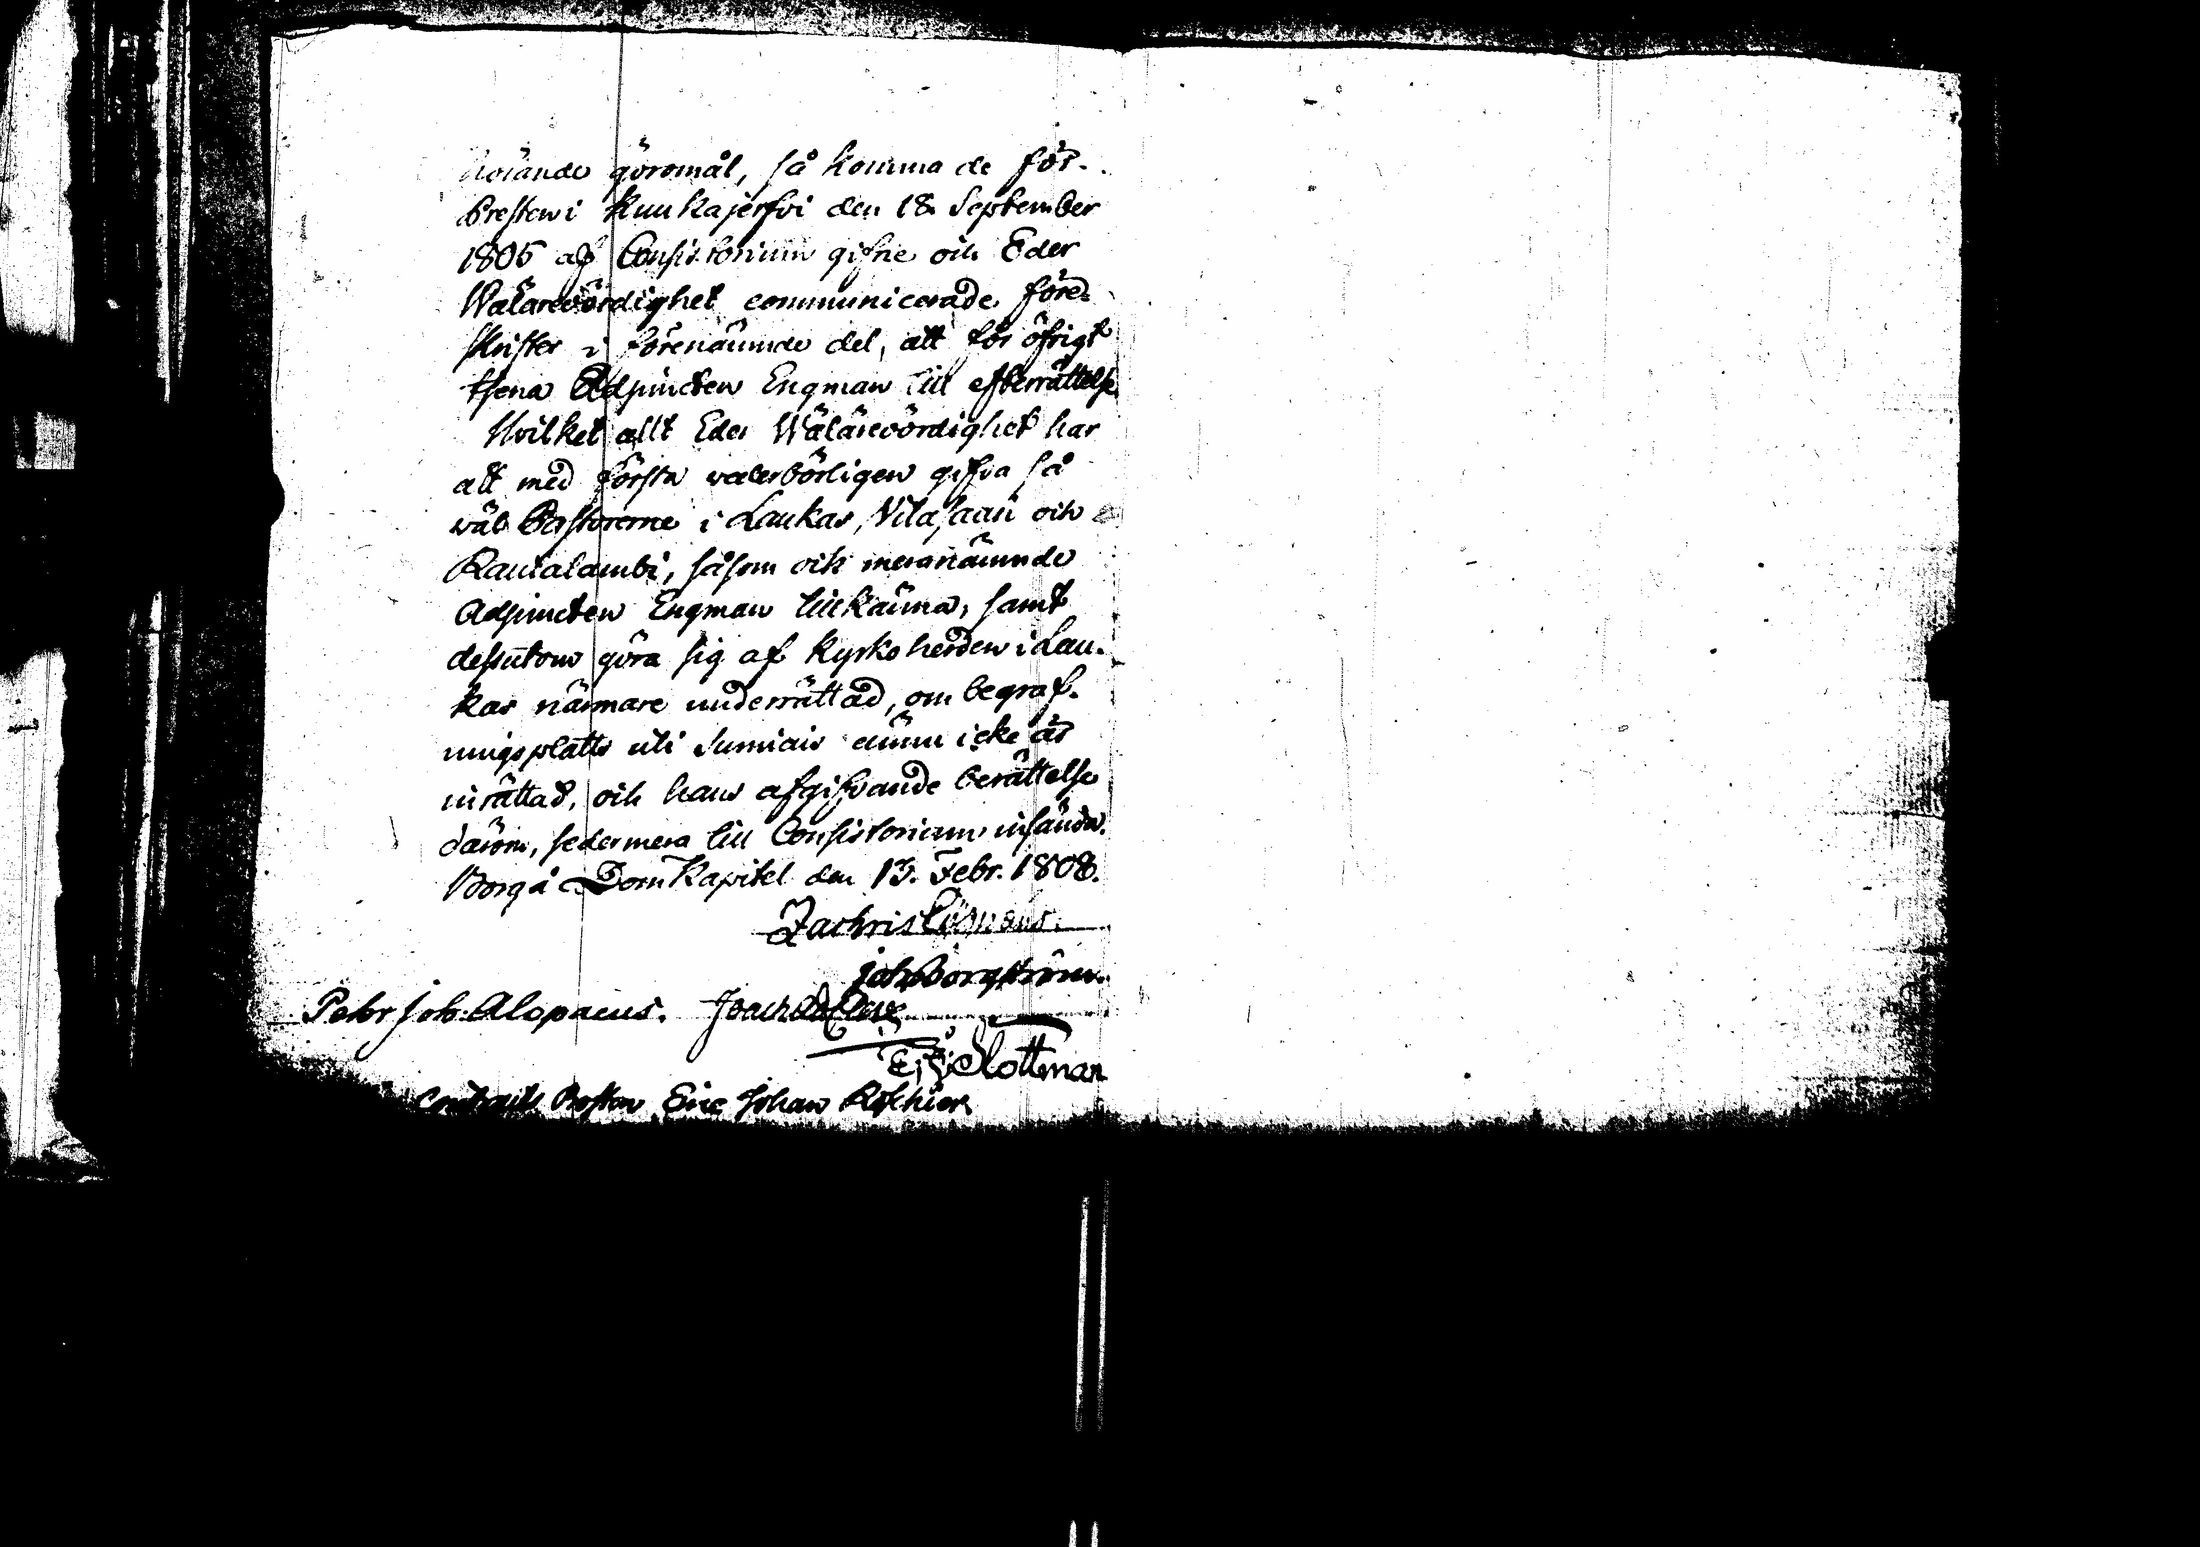 hörande göromål, så komma de för.
Presten i Kuukajerfvi den 18 September
1805 af Consistorium gifne och Eder
Wälärevördighet communicerade före-
skrifter i förenämnde del, att för öfrigt
tjena Adjuncten Engman till efterrättelse
Hvilket allt Eder Wälärevördighet har
att med första vederbörligen gifva så
wäl Pastorerne i Laukas, Vitasaari och
Rautalambi, såsom ock meranämnde
Adjuncten Engman tillkänna, samt
dessutom göra sig af Kyrkoherden i Lau-
kas närmare underrättad, om begraf-
ningsplatts uti Sumiais ännu icke är
inrättad, och hans afgifvande berättelse
därom, sedermera till Consistorium insända.
Borgå DomKapitel den 13. Febr. 1808.
Zachris Cygnæus.
Joh: Borgström.
Pehr Joh: Alopaeus.
Slottman
Contracts Prosten Eric Johan Roschier